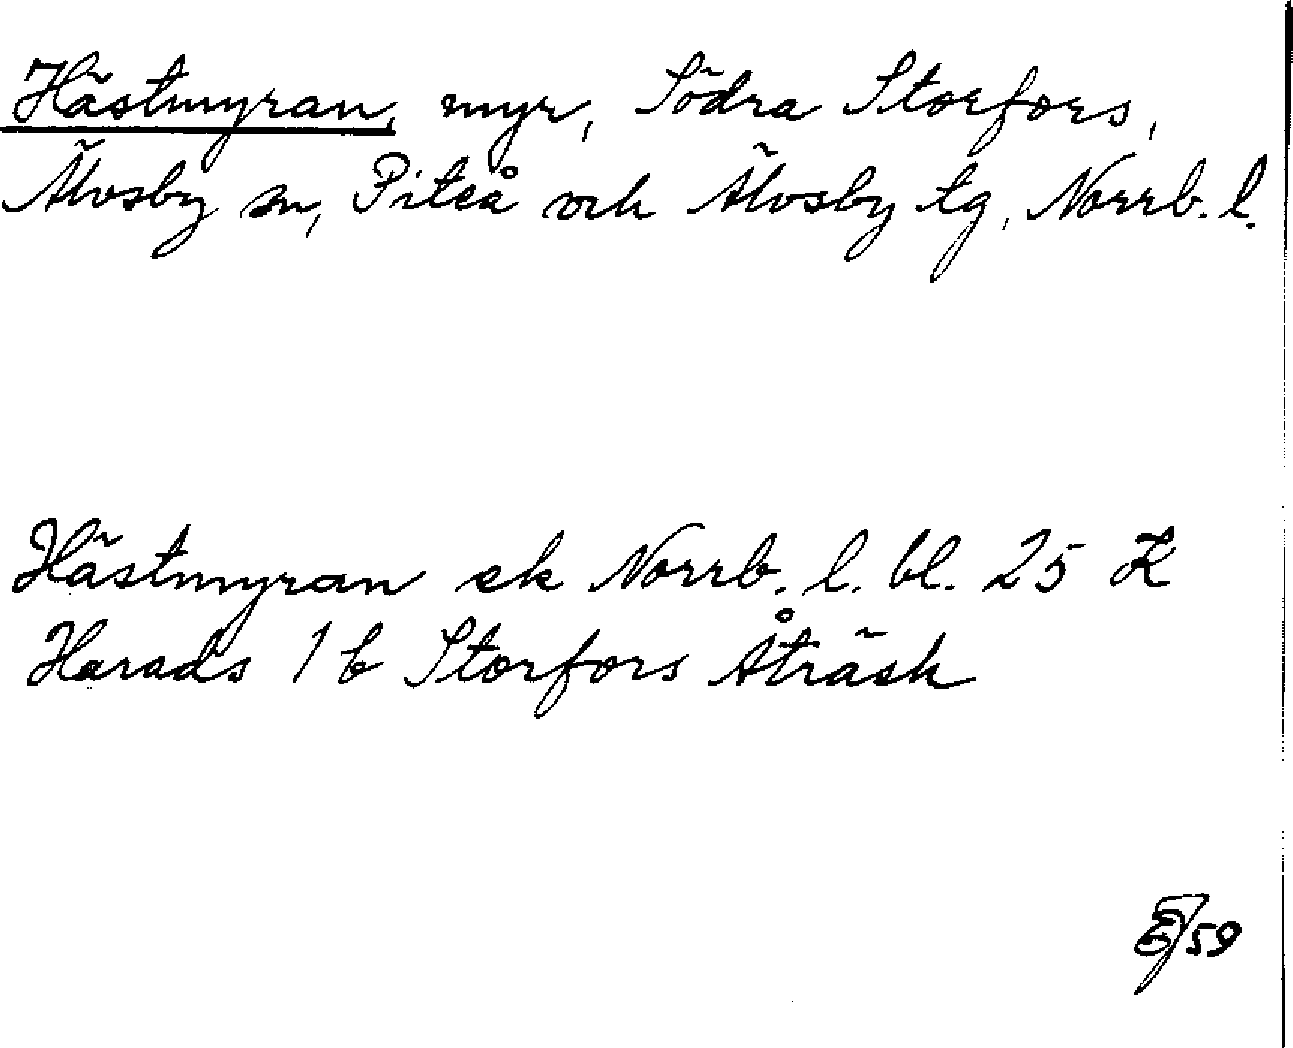 Hästmyran, myr, Södra Storfors,
Älvsby sn, Piteå och Älvsby tg, Norrb. l.
Hästmyran ek Norrb. l. bl. 25 K
Harads 1 b Storfors Åträsk
59